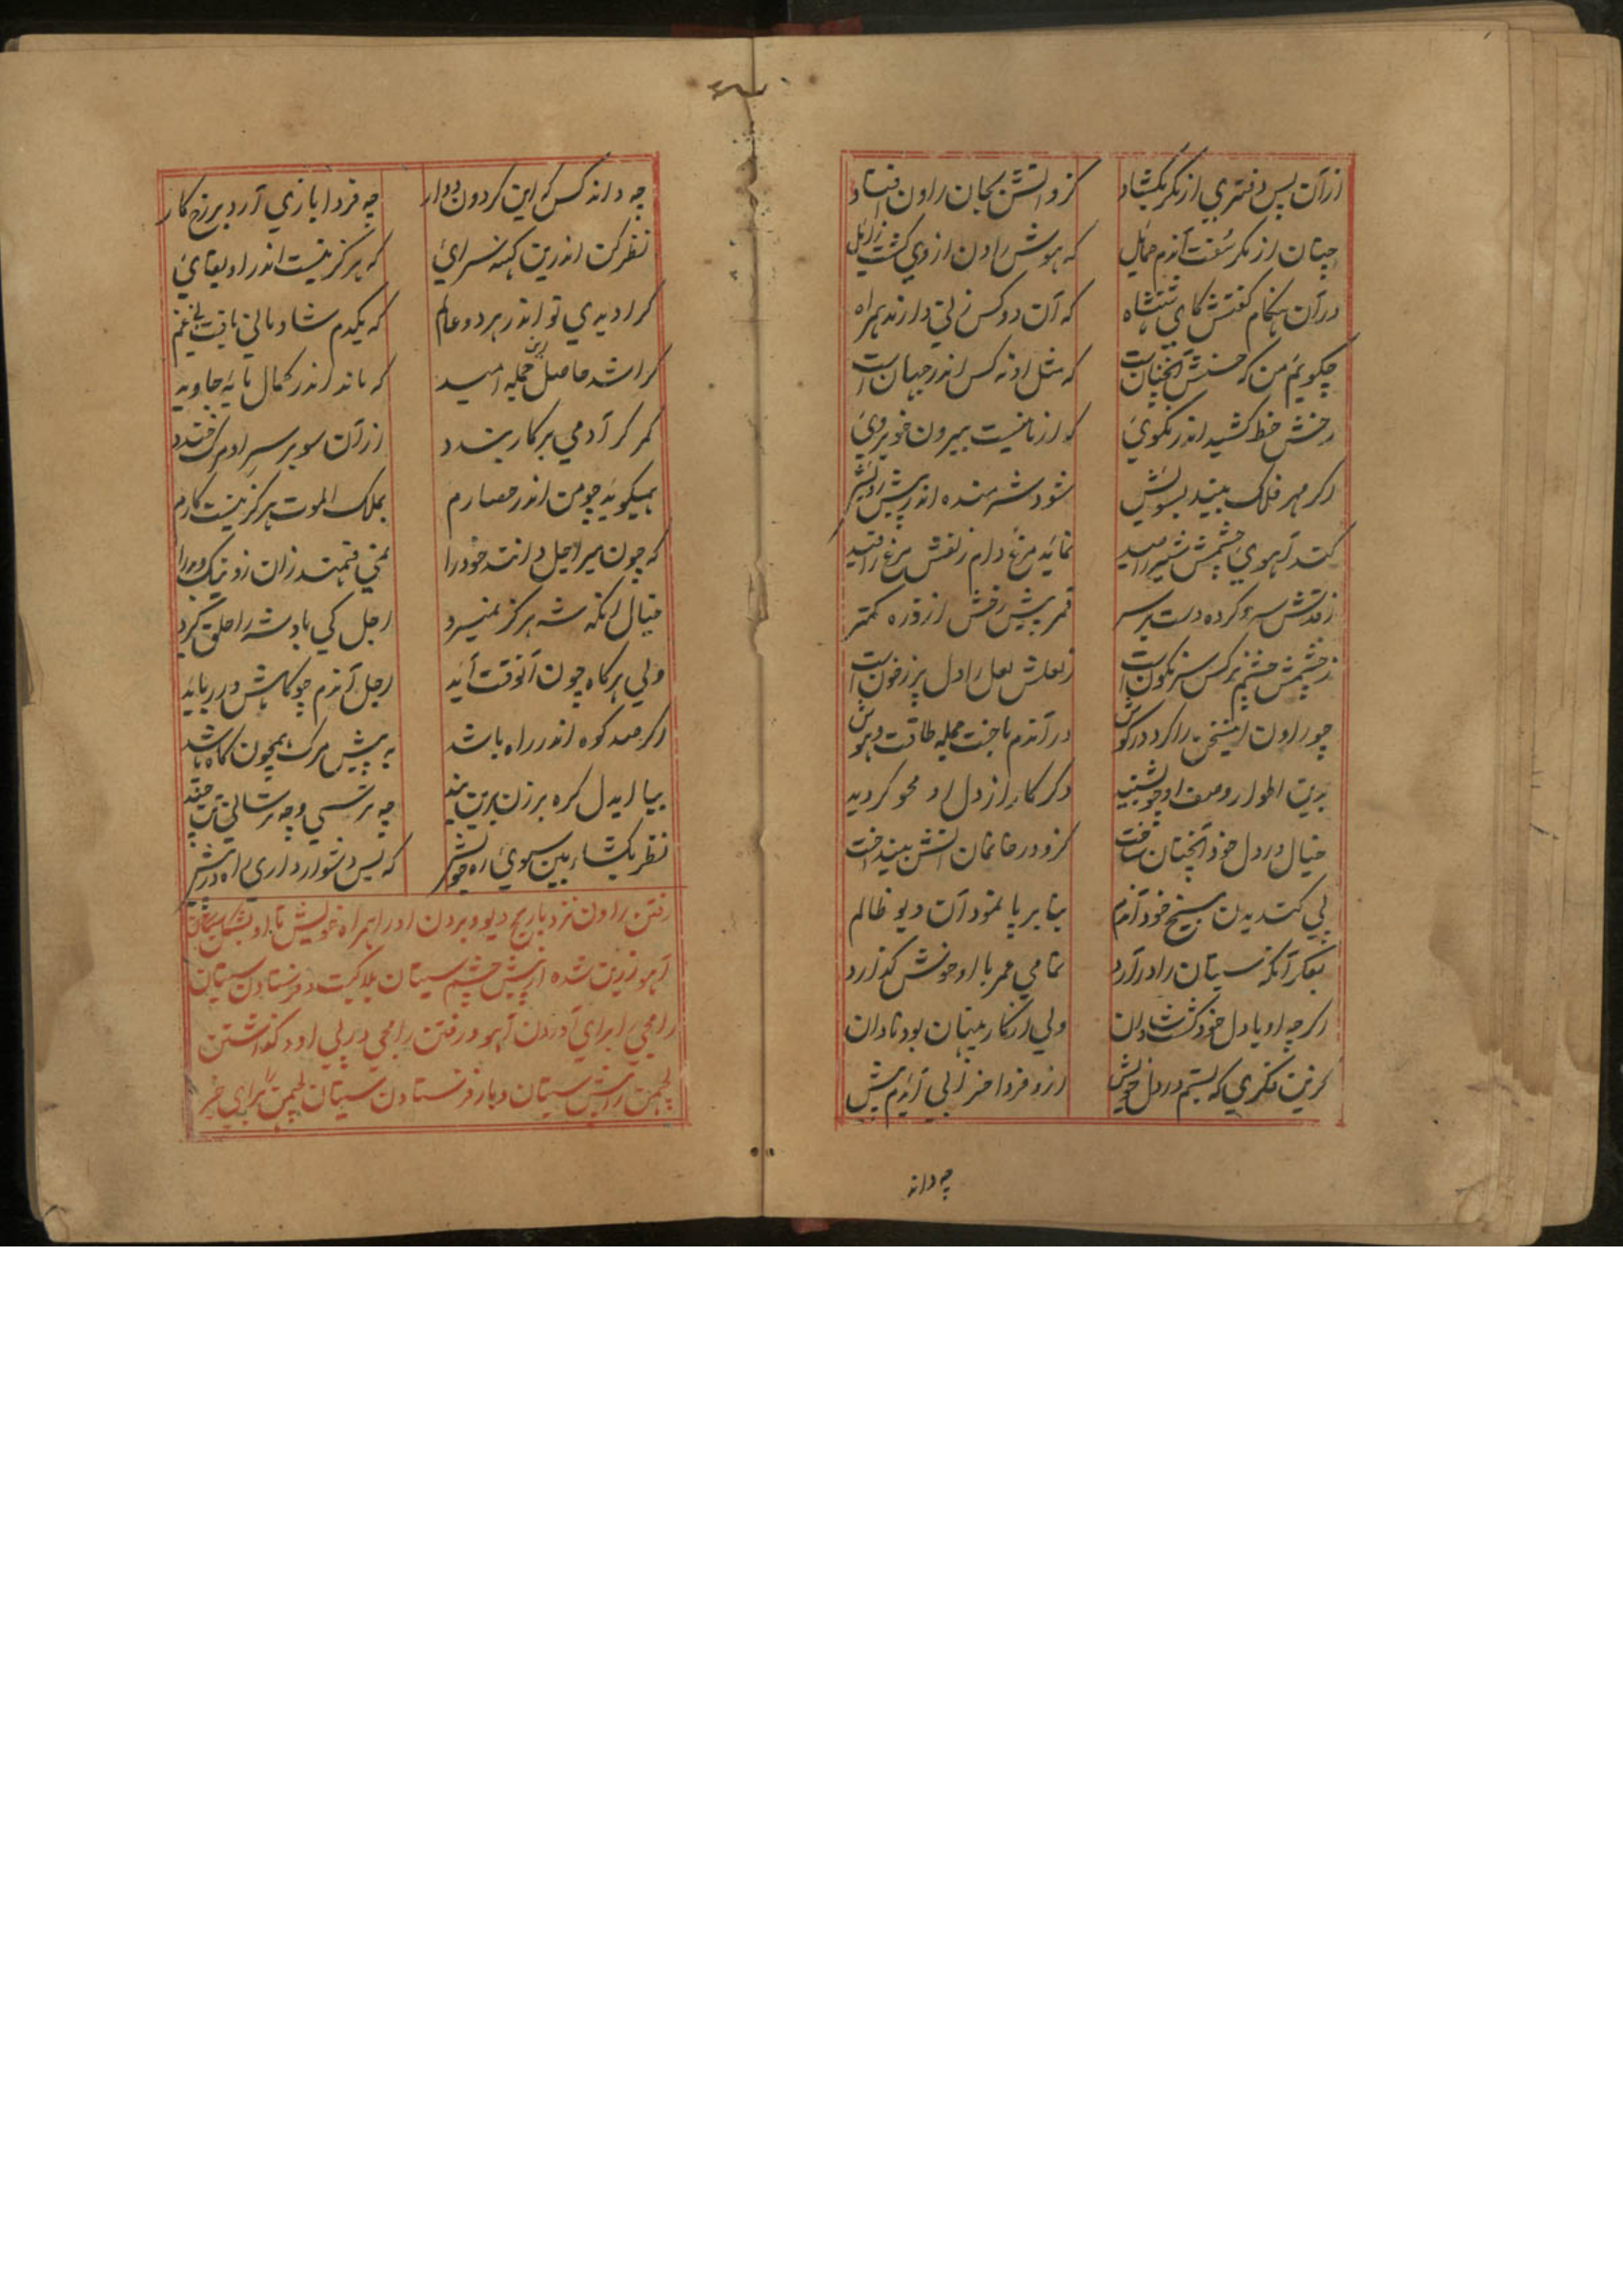 ازآن پس دفتری از مکر بکشاد کزو آتش بجان راون افتاد
چنان از مکر گفت آندم حمایل که هوش راون از وی گشت زایل
درآن هنکام کفتش کای شهنشاه که آن دو کس زنی دارند همراه
چکویم من که حسنش آنچنانست که مثل او نه کس اندر جهان است
رخش خط کشیده اندر نکوئی که از ما نیست بیرون خوبروئی
اکر مهر فلک بیند بسویش شود شرمنده اندر پیش رویش
کند آهوی چشمش شیر را صید نماید مرغ دام زلفش مرغ را قید
زقدش سرو کرده دست برسر قمر پیش رخش از ذره کمتر
زچشمش چشم نرکس سرنکونست زلعلش لعل را دل پر زخون است
چو راون این سخن را کرد در کوش درآندم باخت جمله طاقت و هوش
بدین اطوار وصف او چو بشنید دکر کار از دل او محو کردید
خیال در دل خود آنچنان ساخت کزو در خانمان آتش بینداخت
پی کندیدن بیخ خود آندم بنا بر پا نمود آن دیو ظالم
بفکر آنکه سیتان را درآرد تمامی عمر با او خوش گذارد
اکرچه او با دل خود کشت شادان ولی از کار پنهان بود نادان
کزین فکری که بستم در دل خویش ازو فردا خرابی آیدم پیش
چه داند
چه داند کس که این کردون دوار چه فردا بازی آرد بر رخ کار
نظر کن اندرین کهنه سرائی که هرکز نیست اندر او بقائی
کرا دیدی تو اندر هر دو عالم که یکدم شادمانی یافت بی غم
کرا شد حاصل این جمله امید که ماند اندر کمال مایه جاوید
کمر کر آدمی بر کار بندد ازآن سو بر سر او مرک خندد
همیکوید چو من اندر حصارم بملک الموت هرکز نیست کارم
که چون میر اجل داند خود را نمی فهمند زان رو نیک و بد را
خیال آنکه شه هرکز نمیرد اجل کی پادشه را حلق کیرد
ولی هرکاه چون آنوقت آید اجل آندم چو کاهش در رباید
اکر صد کوه اندر راه باشد به پیش مرک همچون کاه باشد
بیا ایدل کره برزن برین بند چه ترسی و چه ترسانی تن چند
نظر بکشا ببین سوی ره خویش که بس دشوار داری راه در پیش
رفتن راون نزد ماریچ دیو و بردن او را همراه خویش تا او بشکل
آهو زرین شده از پیش چشم سیتان بلاکیت و فرستادن سیتان
رامجی را برای آوردن آهو و رفتن رامجی در پی او و کذاشتن
لچهمن را پیش سیتان و باز فرستادن سیتان لچهمن را برای خبر